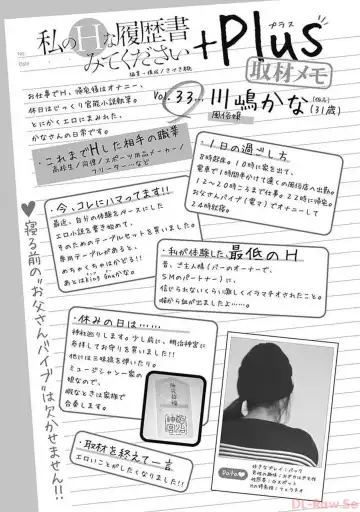 私のHな履歴書
みてください
+Plus
プラス
取材メモ
Vol.33…川嶋かな(仮名)
風俗嬢
(31歳)
お仕事でH、帰宅後はオナニー、
休日はじっくり官能小説執筆。
とにかくエロにまみれた、
かなさんの日常です。
・これまでHした相手の職業
高校生/同僚/スポーツ用品メーカー/
フリーターなど
・1日の過ごし方
8時起床。10時に家を出て、
電車で1時間半かけて遠くの風俗店へ出勤。
12〜20時ごろまで仕事。22時に帰宅。
お父さんバイブ(電マ)でオナニーして
24時就寝。
・今、コレにハマってます!!
最近、自分の体験をベースにした
エロ小説を書き始めて、
そのためのテーブルセットを買いました。
専用テーブルがあると、
めちゃくちゃはかどる!!
あとはKing Gnuかな。
・私が体験した最低のH
昔、ご主人様(バーのオーナーで、
SMのパートナー)に、
信じられないくらい激しくイラマチオされたこと。
喉から血が出ましたよ…
・休みの日は……
神社巡りします。少し前に、明治神宮に
参拝してお守りを買いました!!
他には三味線を弾いたり。
ミュージシャン一家の
娘なので、
暇なときは家族で
合奏します。
・取材を終えて一言
エロいことがしたくなりました!!
♥寝る前の"お父さんバイブ"は欠かせません!!
DL-Raw.Se